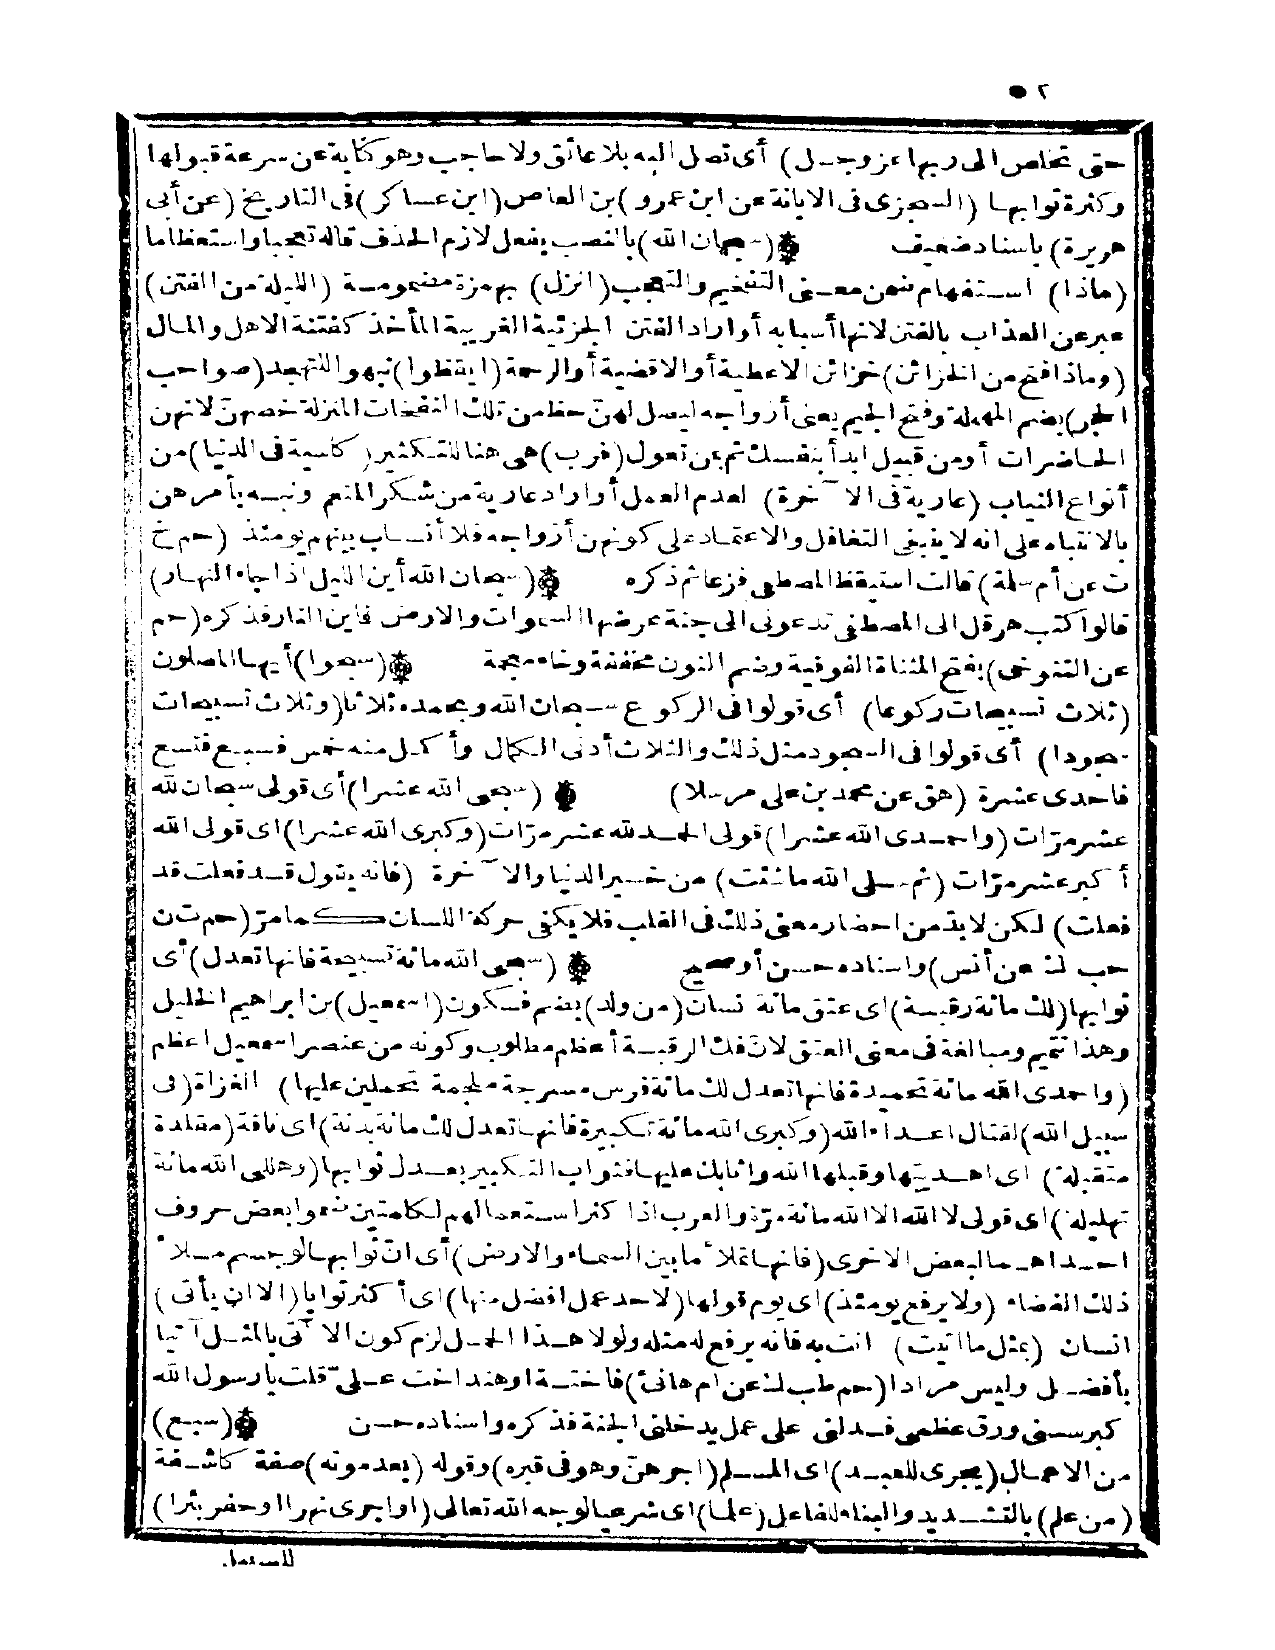 ٢ ●
حتى تخلص الى ربها عز وجل) أى تصل اليه بلا عائق ولا حاجب وهو كناية عن سرعة قبولها
وكثرة ثوابها (السجزى فى الابانة عن ابن عمرو) بن العاص (ابن عساكر) فى التاريخ (عن أبى
هريرة) باسناد ضعيف (سبحان الله) بالنصب بفعل لازم الحذف قاله تعجبا واستعظاما
(ماذا) استفهام ضمن معنى التفخيم والتعجب (انزل) بهمزة مضمومة (الليلة من الفتن)
عبر عن العذاب بالفتن لانها أسبابه أو اراد الفتن الجزئية الغريبة المأخذ كفتنة الاهل والمال
(وماذا فتح من الخزائن) خزائن الاعطية أو الاقضية أو الرحمة (ايقظوا) نبهوا للتهجد (صواحب
الحجر) بضم المهملة وفتح الجيم يعنى أزواجه ليصل لهن حظ من تلك النفحات المنزلة خصهن لانهن
الحاضرات أو من قبيل ابدأ بنفسك ثم بمن تعول (فرب) هى هنا للتكثير (كاسية فى الدنيا) من
أنواع الثياب (عارية فى الآخرة) لعدم العمل أو اراد عارية من شكر المنعم ونبه بأمرهن
بالانتباه على انه لا ينبغى التغافل والاعتماد على كونهن أزواجه فلا أنساب بينهم يومئذ (حم خ
ت عن أم سلمة) قالت استيقظ المصطفى فزعا ثم ذكره (سبحان الله أين الليل اذا جاء النهار)
قالوا كتب هرقل الى المصطفى تدعونى الى جنة عرضها السموات والارض فاين النار فذكره (حم
عن التنوخى) بفتح المثناة الفوقية وضم النون مخففة وخاء معجمة (سبحوا) أيها المصلون
(ثلاث تسبيحات ركوعا) أى قولوا فى الركوع سبحان الله وبحمده ثلاثا (وثلاث تسبيحات
سجودا) أى قولوا فى السجود مثل ذلك والثلاث أدنى الكمال وأكمل منه خمس فسبع فتسع
فاحدى عشرة (هق عن محمد بن على مرسلا) (سبحى الله عشرا) أى قولى سبحان الله
عشر مرّات (واحمدى الله عشرا) قولى الحمد لله عشر مرّات (وكبرى الله عشرا) اى قولى الله
أكبر عشر مرّات (ثم سلى الله ما شئت) من خير الدنيا والآخرة (فانه يقول قد فعلت قد
فعلت) لكن لا بدّ من احضار معنى ذلك فى القلب فلا يكفى حركة اللسان كما مرّ (حم ت ن
حب ك عن أنس) واسناده حسن أو صحيح (سبحى الله مائة تسبيحة فانها تعدل) أى
ثوابها (لك مائة رقبة) اى عتق مائة نسان (من ولد) بضم فسكون (اسمعيل) بن ابراهيم الخليل
وهذا تتميم ومبالغة فى معنى العتق لان فك الرقبة أعظم مطلوب وكونه من عنصر اسمعيل اعظم
(واحمدى الله مائة تحميدة فانها تعدل لك مائة فرس مسرجة ملجمة تحملين عليها) الغزاة (فى
سبيل الله) لقتال اعداء الله (وكبرى الله مائة تكبيرة فانها تعدل لك مائة بدنة) اى ناقة (مقلدة
متقبلة) اى اهديتها وقبلها الله واثابك عليها فثواب التكبير يعدل ثوابها (وهللى الله مائة
تهليلة) اى قولى لا اله الا الله مائة مرّة والعرب اذا كثر استعمالهم لكلمتين ضموا بعض حروف
احداهما لبعض الاخرى (فانها تملأ ما بين السماء والارض) أى انّ ثوابها لو جسم ملأ
ذلك الفضاء (ولا يرفع يومئذ) اى يوم قولها (لاحد عمل افضل منها) اى أكثر ثوابا (الا ان يأتى)
انسان (بمثل ما اتيت) انت به فانه يرفع له مثله ولولا هذا الحمل لزم كون الآتى بالمثل آتيا
بأفضل وليس مرادا (حم طب ك عن ام هانئ) فاختة او هند اخت علىّ قلت يا رسول الله
كبر سنى ورق عظمى فدلنى على عمل يدخلنى الجنة فذكره واسناده حسن (سبع)
من الاعمال (يجرى للعبد) اى المسلم (اجرهنّ وهو فى قبره) وقوله (بعد موته) صفة كاشفة
(من علم) بالتشديد والبناء للفاعل (علما) اى شرعيا لوجه الله تعالى (او اجرى نهرا او حفر بئرا)
للسبيل